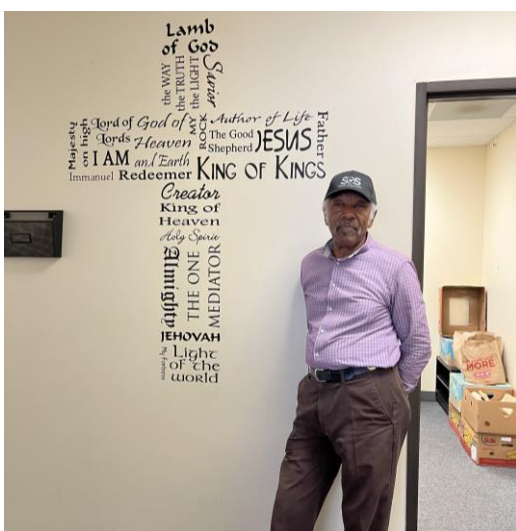 Lamb
of God
the WAY
the TRUTH
the LIGHT
Savior
Majesty
on high
Lord of
Lords
God of
Heaven
and Earth
MY
ROCK
Author of Life
The Good
Shepherd
JESUS
Father
I AM
Immanuel
Redeemer
KING OF KINGS
Creator
King of
Heaven
Holy Spirit
Almighty
THE ONE
MEDIATOR
JEHOVAH
My Fortress
Light
of the
world
MORE